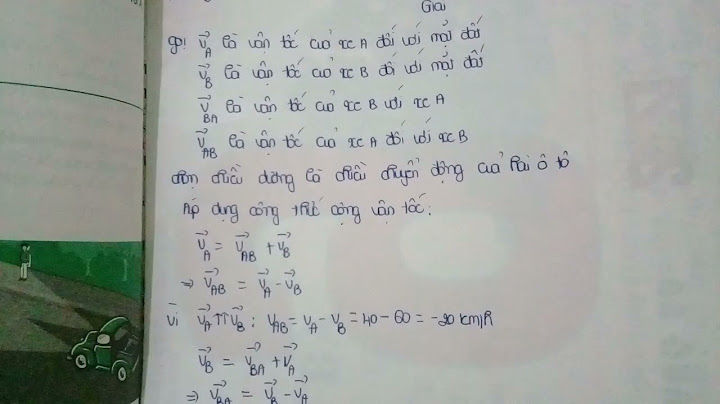 Giải
gọi v⃗_A là vận tốc cuả xe A đối với mặt đất
v⃗_B là vận tốc cuả xe B đối với mặt đất
v⃗_BA là vận tốc cuả xe B với xe A
v⃗_AB là vận tốc cuả xe A đối với xe B
chọn chiều dương là chiều chuyển động cuả hai ô tô
Áp dụng công thức cộng vận tốc:
v⃗_A = v⃗_AB + v⃗_B
⇒ v⃗_AB = v⃗_A - v⃗_B
Vì v⃗_A ↑↑ v⃗_B : v_AB = v_A - v_B = 40 - 60 = -20 km/h
v⃗_B = v⃗_BA + v⃗_A
⇒ v⃗_BA = v⃗_B - v⃗_A